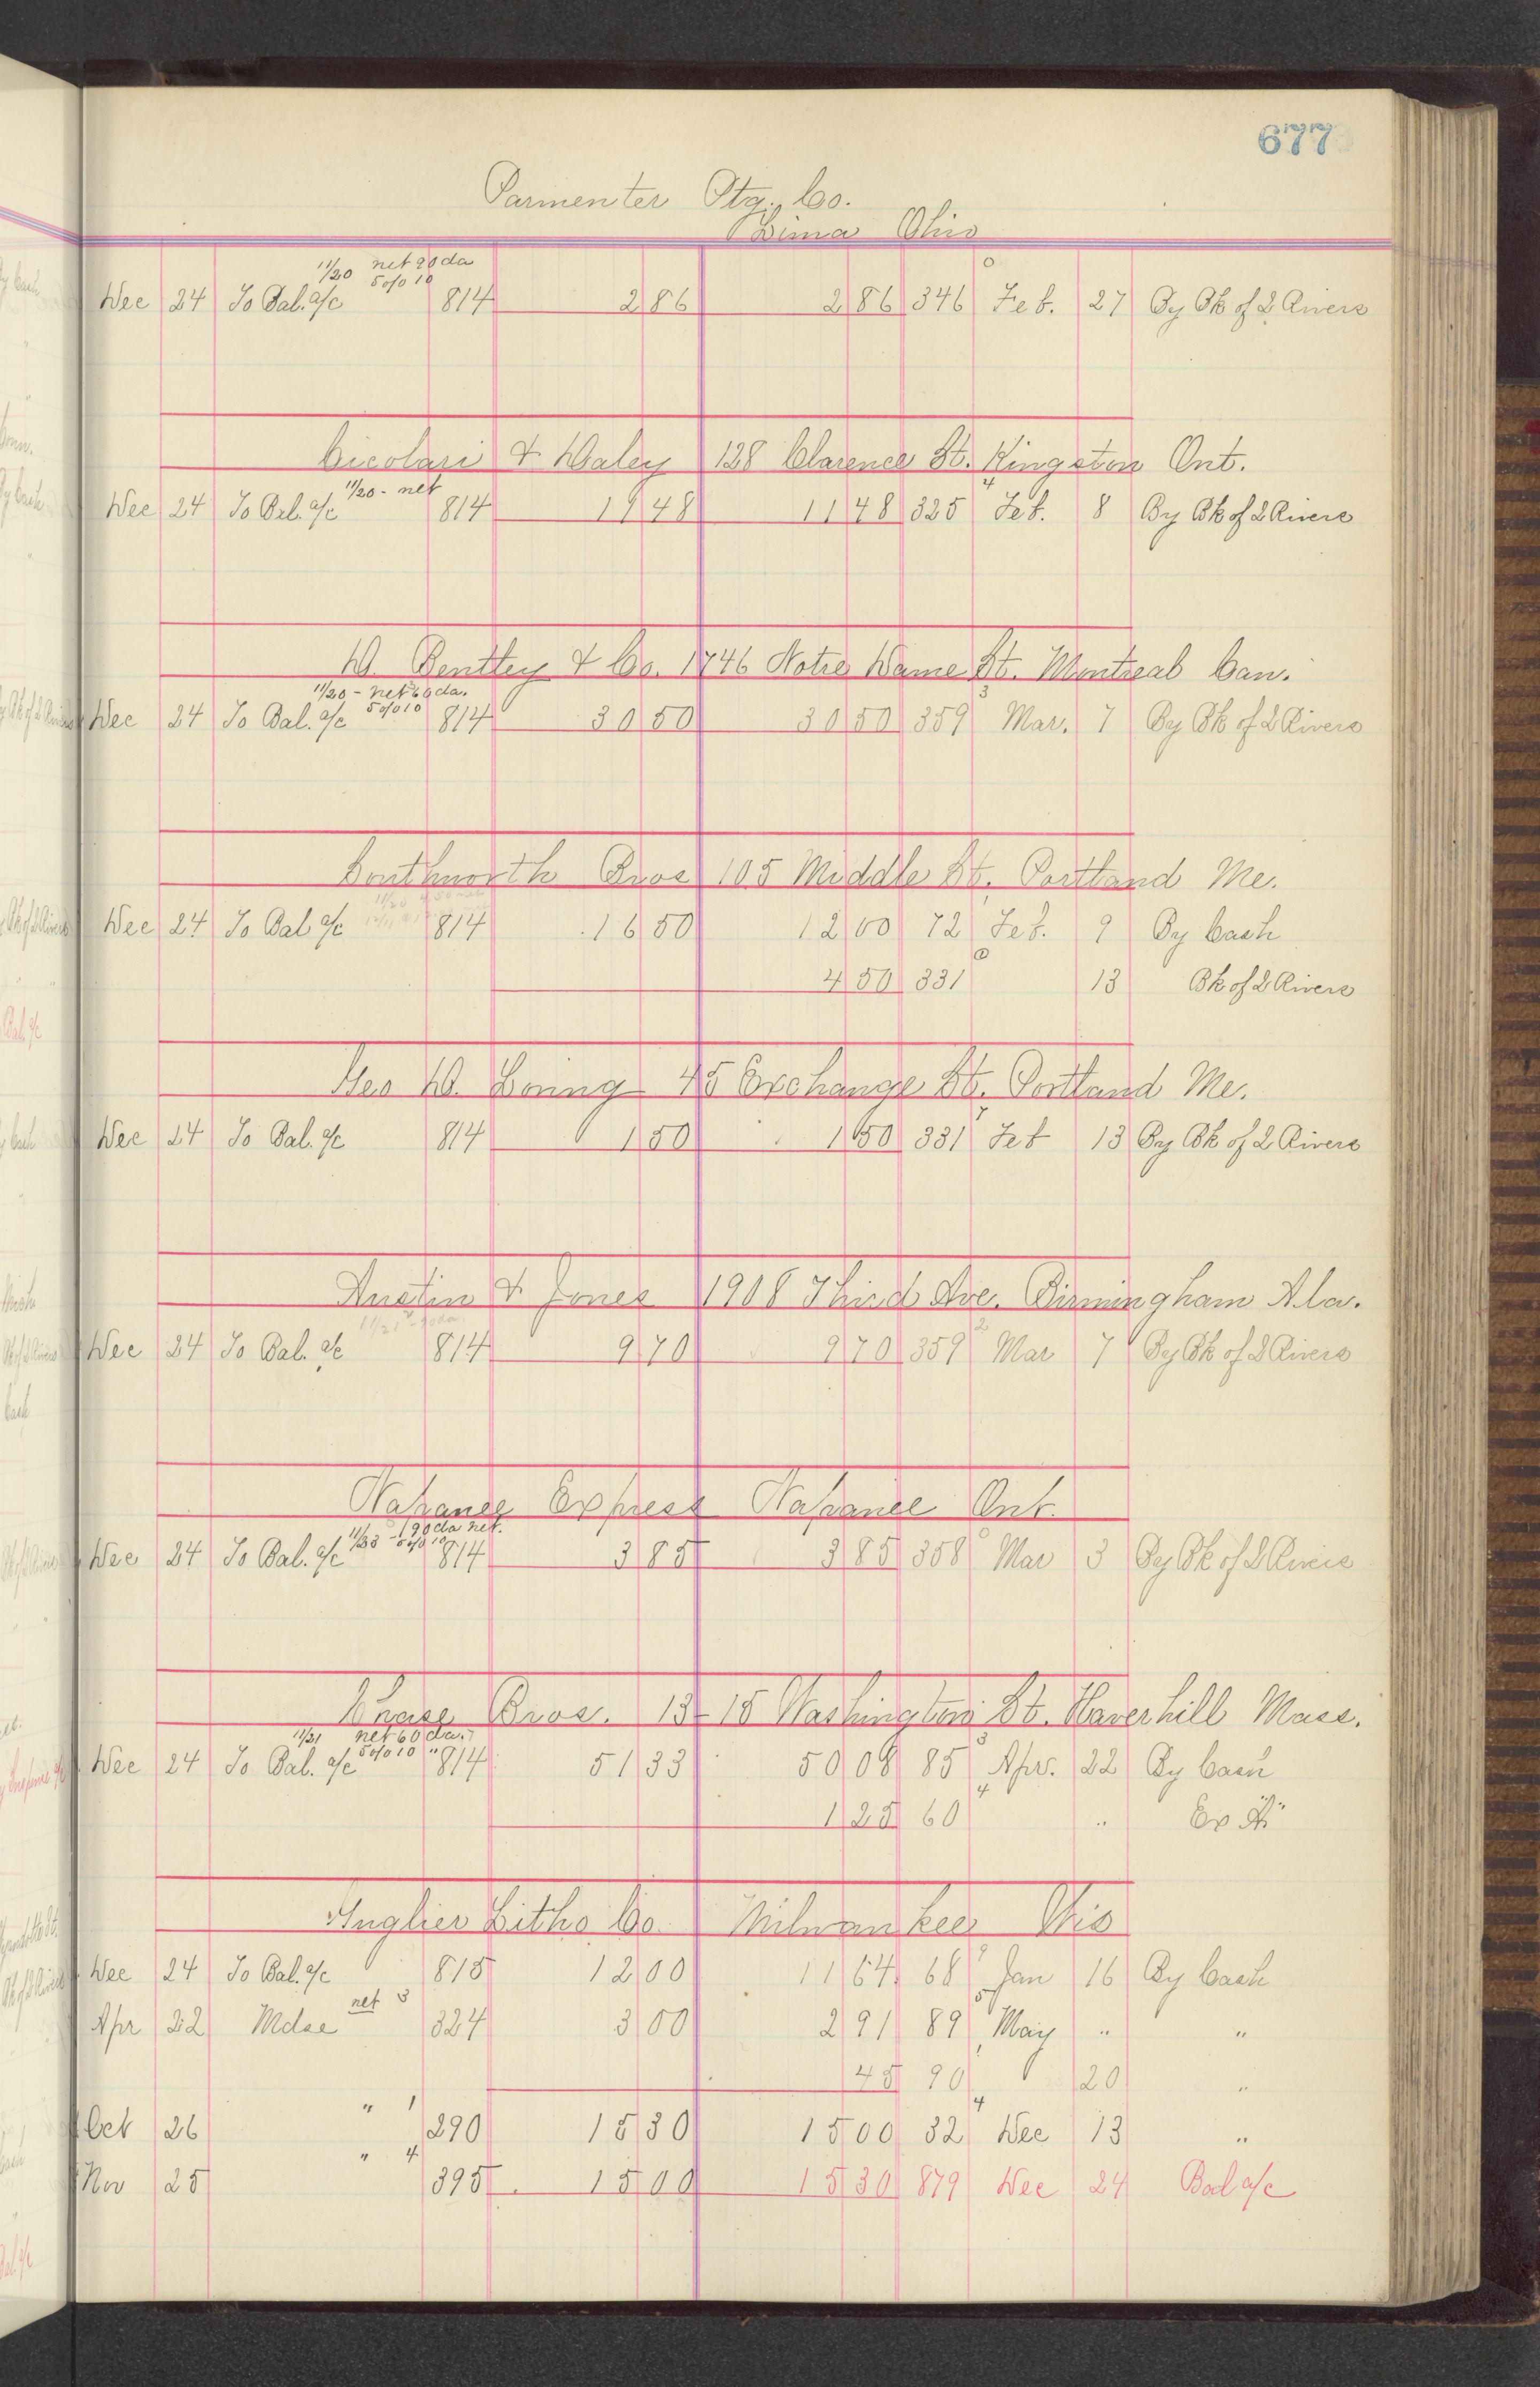 677
Parmenter Ptg. Co.
Lima Ohio
11/20 net 90 da
5 o/o 10
Dec 24 To Bal. a/c 814 2 86 2 86 346 0 Feb. 27 By Bk of 2 Rivers
Cicolari & Daley 128 Clarence St. Kingston Ont.
11/20 - net
Dec 24 To Bal. a/c 814 11 48 11 48 325 4 Feb. 8 By Bk of 2 Rivers
D. Bentley & Co. 1746 Notre Dame St. Montreal Can.
11/20 - net 60 da.
5 o/o 10
Dec 24 To Bal. a/c 814 30 50 30 50 359 3 Mar. 7 By Bk of 2 Rivers
Southworth Bros 105 Middle St. Portland Me.
Dec 24 To Bal a/c 814 16 50 12 00 72 Feb. 9 By Cash
4 50 331 0 13 Bk of 2 Rivers
Geo D. Loring 45 Exchange St. Portland Me.
Dec 24 To Bal. a/c 814 1 50 1 50 331 7 Feb 13 By Bk of 2 Rivers
Austin & Jones 1908 Third Ave. Birmingham Ala.
Dec 24 To Bal. a/c 814 9 70 9 70 359 2 Mar 7 By Bk of 2 Rivers
Napanee Express Napanee Ont.
11/23 - 90 da net.
5 o/o 10
Dec 24 To Bal. a/c 814 3 85 3 85 358 0 Mar 3 By Bk of 2 Rivers
Chase Bros. 13-15 Washington St. Haverhill Mass.
11/21 net 60 da.
5 o/o 10 "
Dec 24 To Bal. a/c 814 51 33 50 08 85 3 Apr. 22 By Cash
1 25 60 4 " Ex "A"
Gugler Litho Co. Milwaukee Wis
Dec 24 To Bal. a/c 815 12 00 11 64 68 9 Jan 16 By Cash
Apr 22 Mdse net 3 324 3 00 2 91 89 5 May " "
45 90 1 20 "
Oct 26 " 1 290 15 30 15 00 32 4 Dec 13 "
Nov 25 " 4 395 15 00 15 30 879 Dec 24 Bal a/c